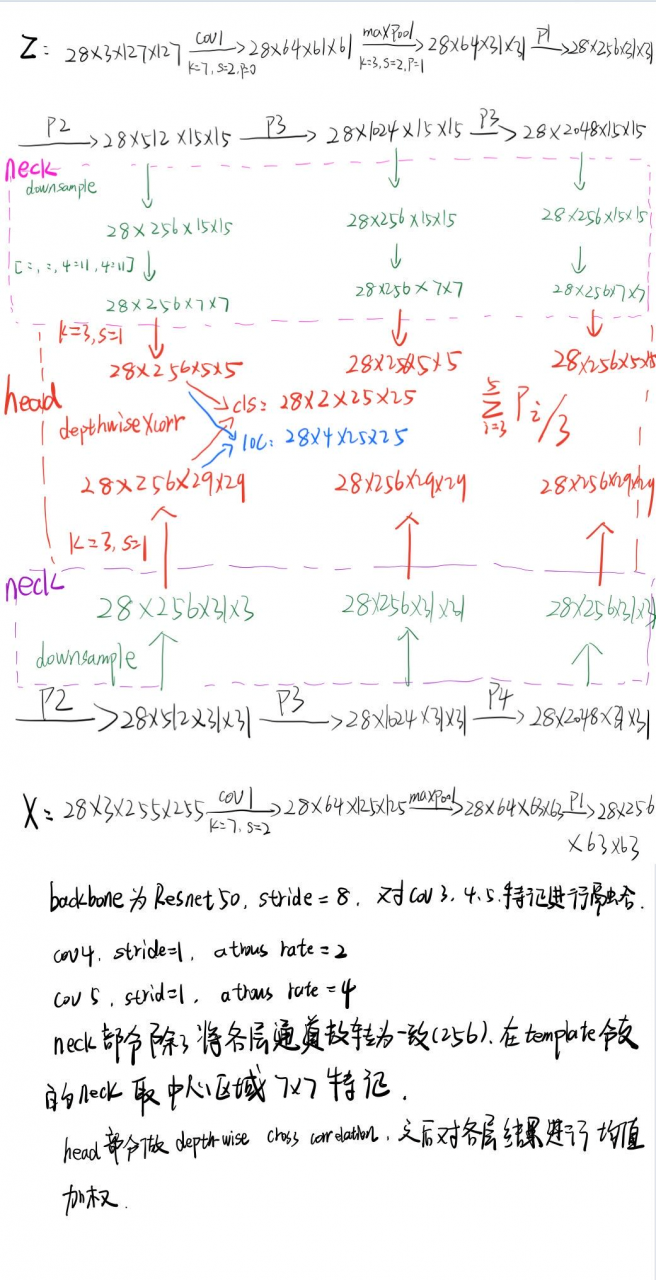 Z: 28×3×127×127 cov1 k=7,s=2,p=0 28×64×61×61 maxpool k=3,s=2,p=1 28×64×31×31 P1 28×256×31×31
P2 28×512×15×15 P3 28×1024×15×15 P3 28×2048×15×15
neck
downsample
28×256×15×15 28×256×15×15 28×256×15×15
[:,:,4:11,4:11]
28×256×7×7 28×256×7×7 28×256×7×7
k=3,s=1
28×256×5×5 28×256×5×5 28×256×5×5
head
cls: 28×2×25×25
depthwise Xcorr
loc: 28×4×25×25
5 Σ i=3 Pi/3
28×256×29×29 28×256×29×29 28×256×29×29
k=3,s=1
neck
28×256×31×3 28×256×31×31 28×256×31×31
downsample
P2 28×512×31×31 P3 28×1024×31×31 P4 28×2048×31×31
X: 28×3×255×255 cov1 k=7,s=2 28×64×125×125 maxpool 28×64×63×63 P1 28×256
×63×63
backbone为Resnet50, stride=8, 对cov3,4,5.特征进行融合.
cov4, stride=1, atrous rate=2
cov5, strid=1, atrous rate=4
neck部分除了将各层通道数转为一致(256).在template分支
的neck取中心区域7×7特征.
head部分做depth-wise cross correlation,之后对各层结果进行均值
加权.